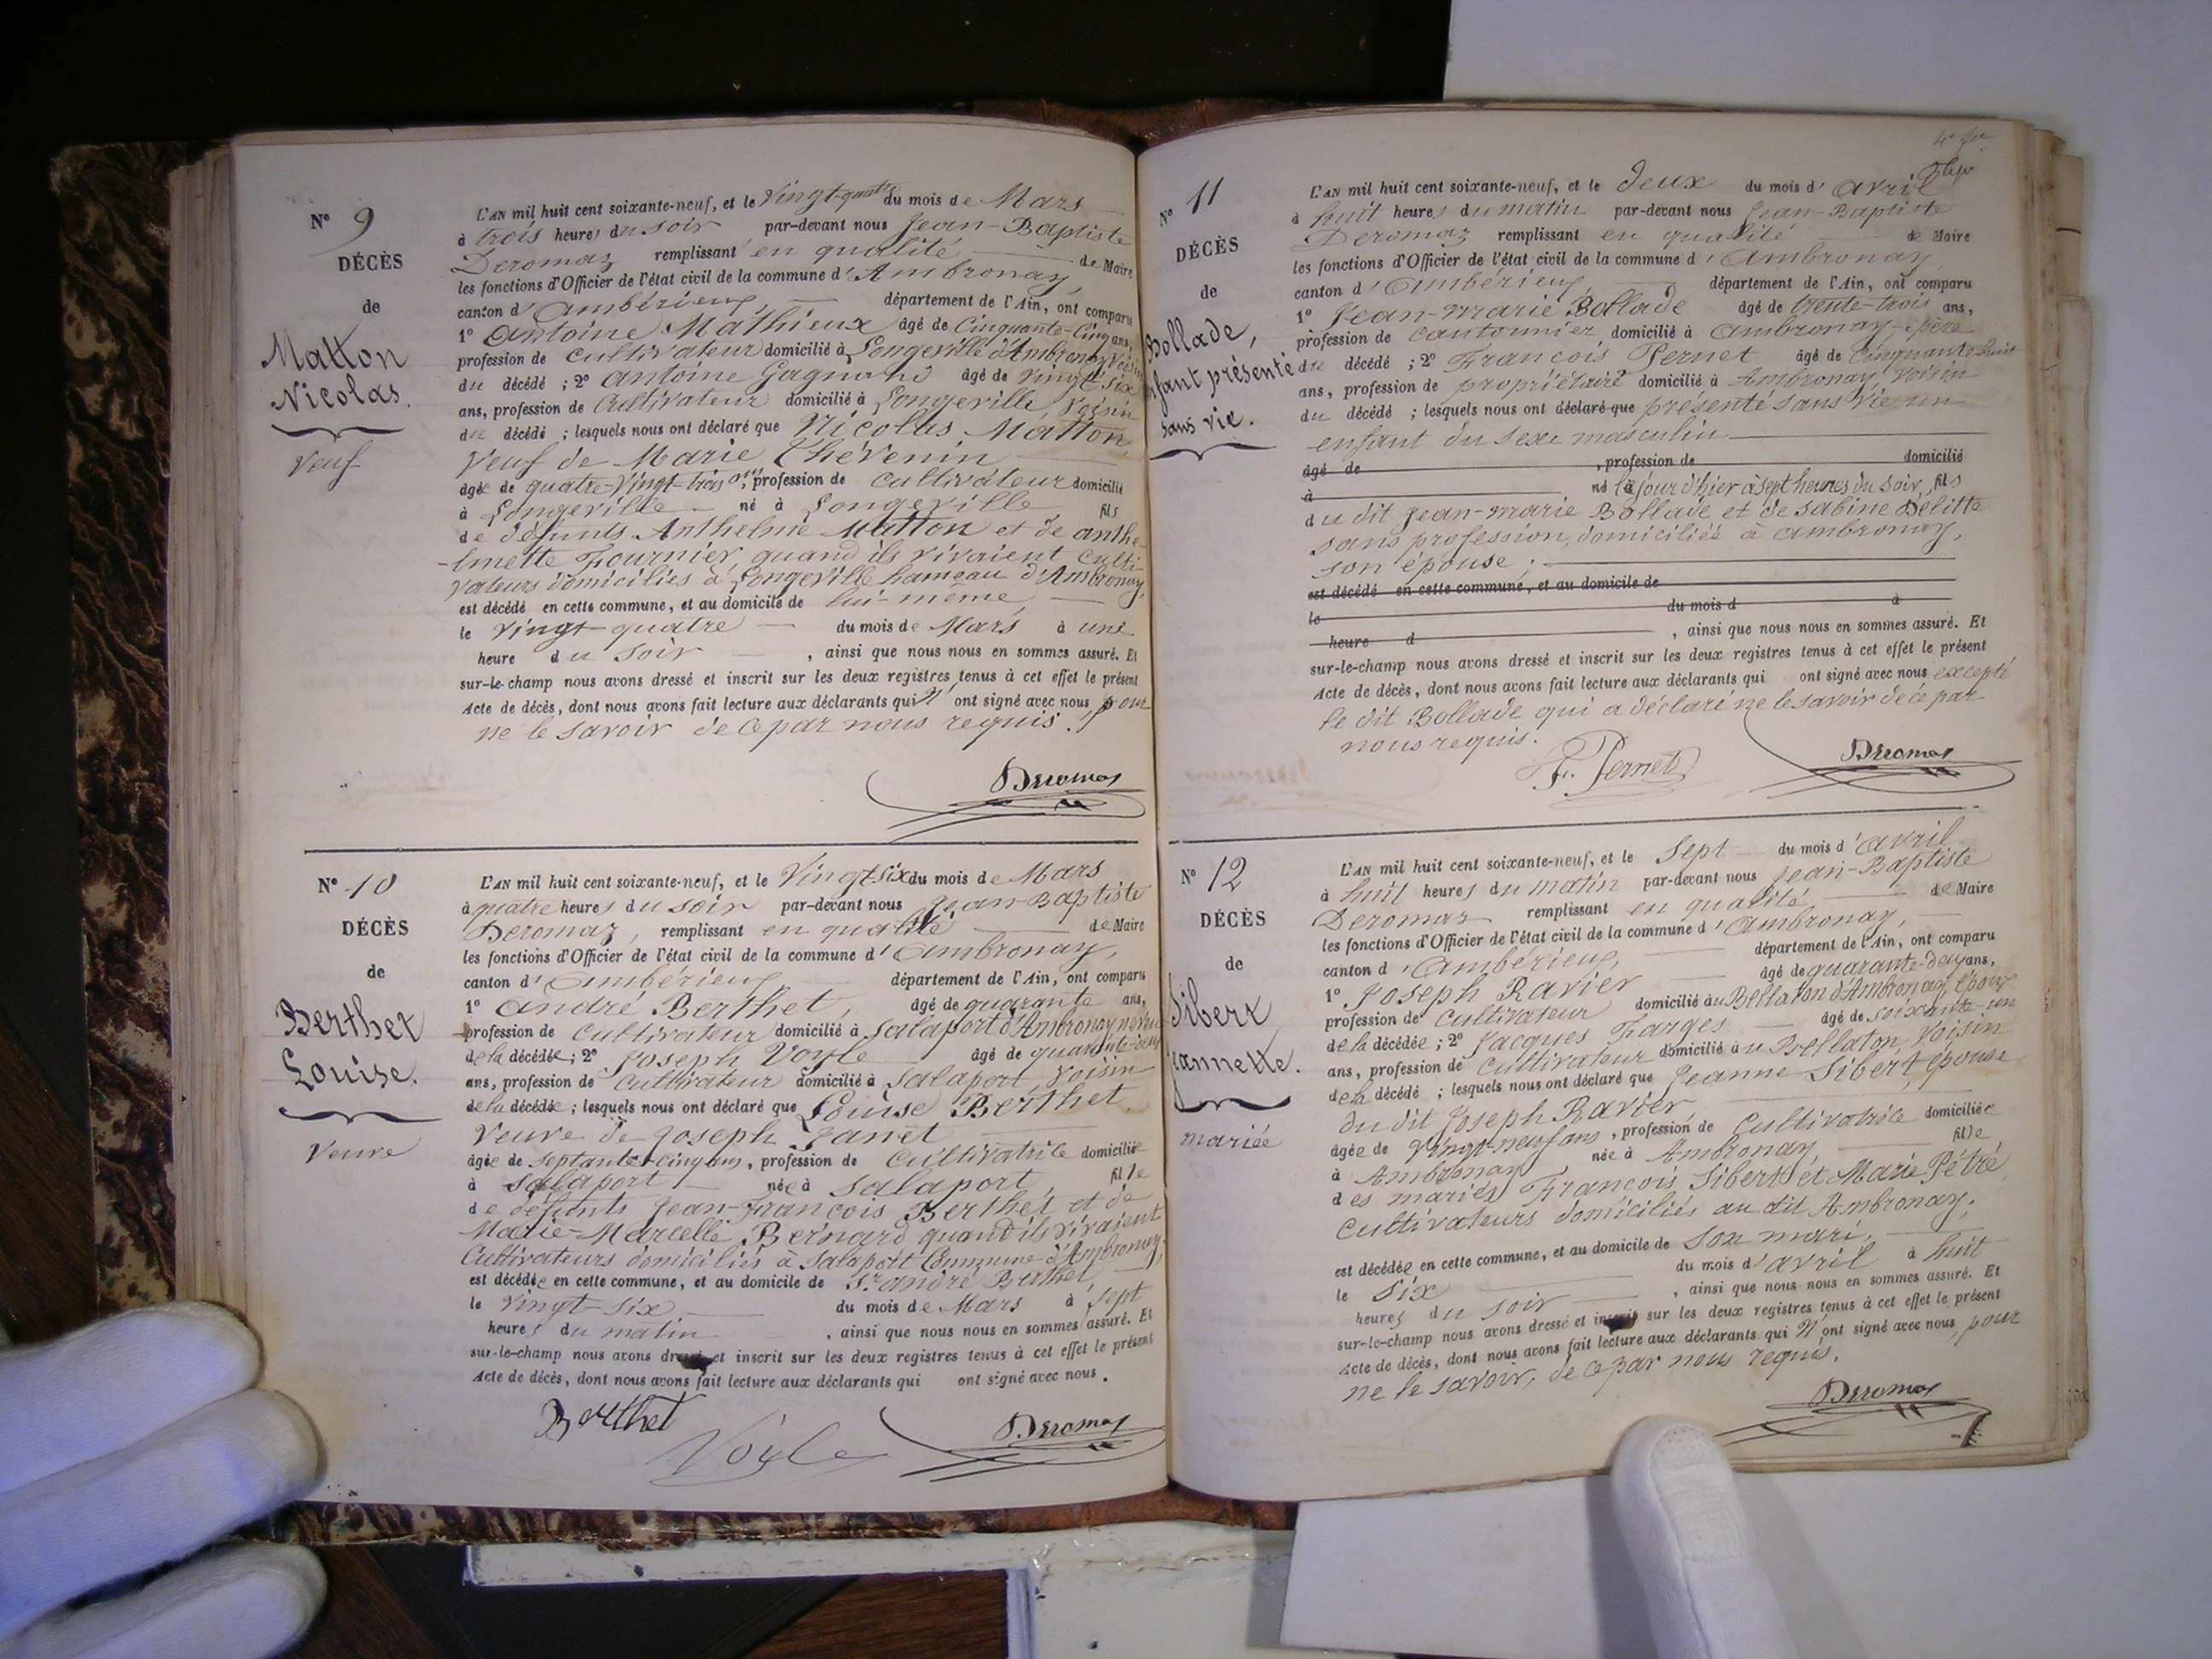 N° 9
DÉCÈS
de
Matton
Nicolas.
Veuf
L'AN mil huit cent soixante-neuf, et le Vingt-quatre du mois de Mars
à trois heures du soir par-devant nous Jean-Baptiste
Deromaz remplissant en qualité de Maire
les fonctions d'Officier de l'état civil de la commune d'Ambronay,
canton d'Ambérieux, département de l'Ain, ont comparu
1° Antoine Mathieux âgé de Cinquante-Cinq ans,
profession de Cultivateur domicilié à Longeville d'Ambronay Voisin
du décédé ; 2° Antoine Gagnard âgé de Vingt Six
ans, profession de Cultivateur domicilié à Longeville, Voisin
du décédé ; lesquels nous ont déclaré que Nicolas Matton,
Veuf de Marie Thévenin
âgé de quatre-Vingt-trois ans, profession de Cultivateur domicilié
à Longeville né à Longeville fils
de défunts Anthelme Matton et de anthe-
-lmette Fournier quand ils vivaient Culti-
vateurs domiciliés à Longeville hameau d'Ambronay,
est décédé en cette commune, et au domicile de lui-même,
le Vingt-quatre du mois de Mars à une
heure du soir , ainsi que nous nous en sommes assuré. Et
sur-le-champ nous avons dressé et inscrit sur les deux registres tenus à cet effet le présent
Acte de décès, dont nous avons fait lecture aux déclarants qui n'ont signé avec nous pour
ne le savoir de ce par nous requis.
Deromaz
N° 10
DÉCÈS
de
Berthet
Louise.
Veuve
L'AN mil huit cent soixante-neuf, et le Vingt-Six du mois de Mars
à quatre heures du soir par-devant nous Jean-Baptiste
Deromaz, remplissant en qualité de Maire
les fonctions d'Officier de l'état civil de la commune d'Ambronay,
canton d'Ambérieux département de l'Ain, ont comparu
1° André Berthet, âgé de quarante ans,
profession de Cultivateur domicilié à Salaport d'Ambronay neveu
de la décédée ; 2° Joseph Voyle âgé de quarante-deux
ans, profession de Cultivateur domicilié à Salaport, Voisin
de la décédée ; lesquels nous ont déclaré que Louise Berthet,
Veuve de Joseph Janet
âgée de Septante-Cinq ans, profession de Cultivatrice domiciliée
à Salaport née à Salaport, fille
de défunts Jean-François Berthet et de
Marie-Marcelle Bernard quand ils vivaient
Cultivateurs domiciliés à Salaport Commune d'Ambronay,
est décédée en cette commune, et au domicile de Sr André Berthet,
le Vingt-Six du mois de Mars à sept
heures du matin , ainsi que nous nous en sommes assuré. Et
sur-le-champ nous avons dressé et inscrit sur les deux registres tenus à cet effet le présent
Acte de décès, dont nous avons fait lecture aux déclarants qui ont signé avec nous.
Berthet
Voyle
Deromaz
N° 11
DÉCÈS
de
Bollade,
enfant présenté
sans vie.
L'AN mil huit cent soixante-neuf, et le deux du mois d'avril
à huit heures du matin par-devant nous Jean-Baptiste
Deromaz remplissant en qualité de Maire
les fonctions d'Officier de l'état civil de la commune d'Ambronay
canton d'Ambérieux, département de l'Ain, ont comparu
1° Jean-marie Bollade âgé de trente-trois ans,
profession de Cantonnier domicilié à Ambronay, père
du décédé ; 2° François Pernet âgé de Cinquante-huit
ans, profession de propriétaire domicilié à Ambronay, voisin
du décédé ; lesquels nous ont déclaré que présenté sans vie un
enfant du sexe masculin
âgé de , profession de domicilié
à né le jour d'hier à sept heures du soir, fils
du dit Jean-marie Bollade et de Sabine Délitte
sans profession, domiciliée à Ambronay,
son épouse ;
est décédé en cette commune, et au domicile de
le du mois d à
heure d , ainsi que nous nous en sommes assuré. Et
sur-le-champ nous avons dressé et inscrit sur les deux registres tenus à cet effet le présent
Acte de décès, dont nous avons fait lecture aux déclarants qui ont signé avec nous excepté
le dit Bollade qui a déclaré ne le savoir de ce par
nous requis.
F. Pernet
Deromaz
N° 12
DÉCÈS
de
Sibert
Jeannette.
mariée
L'AN mil huit cent soixante-neuf, et le Sept du mois d'avril
à huit heures du matin par-devant nous Jean-Baptiste
Deromaz remplissant en qualité de Maire
les fonctions d'Officier de l'état civil de la commune d'Ambronay,
canton d'Ambérieux, département de l'Ain, ont comparu
1° Joseph Ravier âgé de quarante-deux ans,
profession de Cultivateur domicilié au Bellaton d'Ambronay, époux
de la décédée ; 2° Jacques Farges âgé de soixante-un
ans, profession de Cultivateur domicilié au Bellaton, Voisin
de la décédé ; lesquels nous ont déclaré que Jeanne Sibert, épouse
du dit Joseph Ravier
âgée de Vingt-neuf ans, profession de Cultivatrice domiciliée
à Ambronay née à Ambronay fille
des mariés François Sibert et Marie Pétré,
Cultivateurs domiciliés au dit Ambronay ;
est décédée en cette commune, et au domicile de son mari,
le six du mois d'avril à huit
heures du soir , ainsi que nous nous en sommes assuré. Et
sur-le-champ nous avons dressé et inscrit sur les deux registres tenus à cet effet le présent
Acte de décès, dont nous avons fait lecture aux déclarants qui n'ont signé avec nous, pour
ne le savoir, de ce par nous requis.
Deromaz